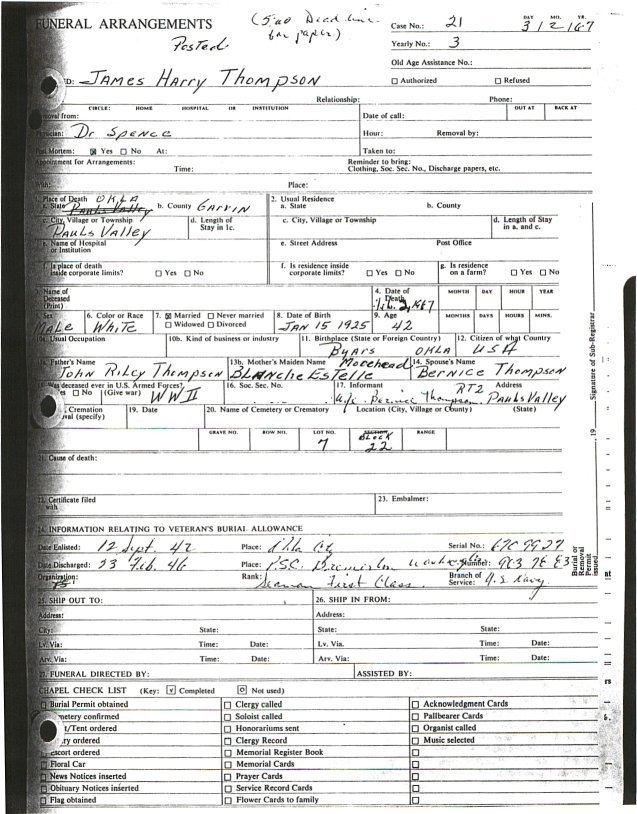 FUNERAL ARRANGEMENTS
(5:00 Dead line for paper)
Posted
Case No.: 21
DAY MO. YR.
3 2 67
Yearly No.: 3
Old Age Assistance No.:
Authorized Refused
JAMES HARRY THOMPSON
Relationship: Phone:
CIRCLE: HOME HOSPITAL OR INSTITUTION OUT AT BACK AT
Date of call:
Dr Spence Hour: Removal by:
Yes No At: Taken to:
Appointment for Arrangements: Time:
Reminder to bring:
Clothing, Soc. Sec. No., Discharge papers, etc.
With: Place:
1. Place of Death OKLA
a. State Pauls Valley b. County GARVIN
2. Usual Residence
a. State b. County
c. City, Village or Township
PAULS VALLEY
d. Length of Stay in 1c.
c. City, Village or Township d. Length of Stay in a. and c.
e. Name of Hospital or Institution
e. Street Address Post Office
f. Is place of death inside corporate limits? Yes No
f. Is residence inside corporate limits? Yes No
g. Is residence on a farm? Yes No
3. Name of Deceased (Print)
4. Date of Death Feb. 2, 1967
MONTH DAY HOUR YEAR
5. Sex MALE
6. Color or Race WHITE
7. Married Never married
Widowed Divorced
8. Date of Birth JAN 15 1925
9. Age 42
MONTHS DAYS HOURS MINS.
10a. Usual Occupation
10b. Kind of business or industry
11. Birthplace (State or Foreign Country)
BYARS OKLA
12. Citizen of what Country
USA
13a. Father's Name
JOHN RILEY THOMPSON
13b. Mother's Maiden Name Morehead
BLANCHE ESTELLE
14. Spouse's Name
BERNICE THOMPSON
15. Was deceased ever in U.S. Armed Forces?
Yes No (Give war) WW II
16. Soc. Sec. No.
17. Informant RT2 Address
Bernice Thompson Pauls Valley
Cremation
(specify)
19. Date
20. Name of Cemetery or Crematory Location (City, Village or County) (State)
GRAVE NO. ROW NO. LOT NO. 7 SECTION BLOCK 22 RANGE
21. Cause of death:
22. Certificate filed with
23. Embalmer:
24. INFORMATION RELATING TO VETERAN'S BURIAL ALLOWANCE
Date Enlisted: 12 Sept. 42 Place: Okla City Serial No.: 670 99 27
Date Discharged: 23 Feb. 46 Place: P.S.C. Bremerton Washington
Organization: Rank: Seaman First Class Branch of Service: U.S. Navy
25. SHIP OUT TO: 26. SHIP IN FROM:
Address: Address:
City: State: State: State:
Lv. Via: Time: Date: Lv. Via: Time: Date:
Arv. Via: Time: Date: Arv. Via: Time: Date:
27. FUNERAL DIRECTED BY: ASSISTED BY:
CHAPEL CHECK LIST (Key: v Completed o Not used)
Burial Permit obtained Clergy called Acknowledgment Cards
Cemetery confirmed Soloist called Pallbearer Cards
/Tent ordered Honorariums sent Organist called
ordered Clergy Record Music selected
Escort ordered Memorial Register Book
Floral Car Memorial Cards
News Notices inserted Prayer Cards
Obituary Notices inserted Service Record Cards
Flag obtained Flower Cards to family
Signature of Sub-Registrar
19
Burial or Removal Permit issued